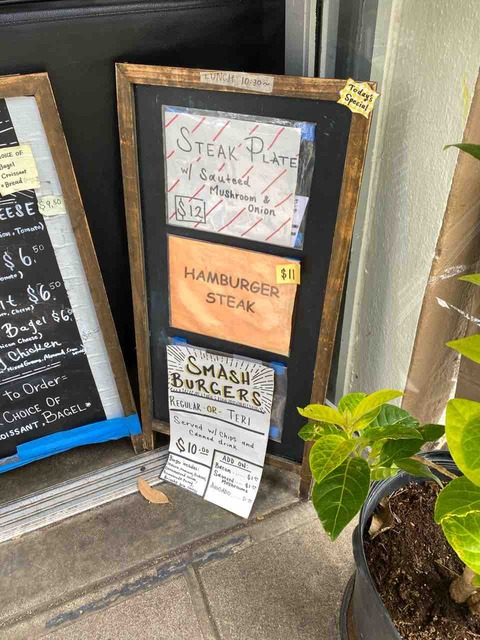 LUNCH 10:30~
Today's
Special
STEAK PLATE
w/ Sauteed
Mushroom &
Onion
$12
HAMBURGER
STEAK
$11
SMASH
BURGERS
REGULAR -OR- TERI
Served w/ Chips and
Canned drink
$10.00
ADD ON:
Bacon
Sauteed
Mushrooms
Avocado
Burger includes:
OICE OF
Bagel
Croissant
Bread
$9.50
EESE
Tomato)
$6.50
$6.50
Bagel $6
Chicken
to Order=
CHOICE OF
OISSANT, BAGEL*